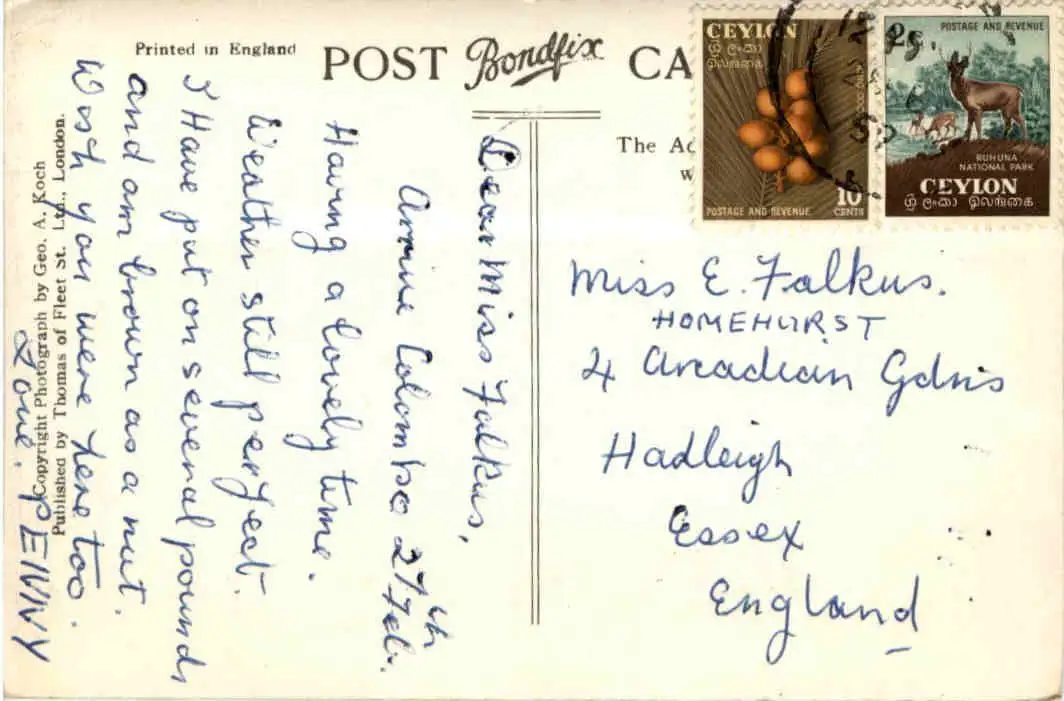 Printed in England
POST Bondfix CA
The Ad
w
CEYLON
ශ්‍රී ලංකා
இலங்கை
KING COCONUT
10
CENTS
POSTAGE AND REVENUE
POSTAGE AND REVENUE
RUHUNA
NATIONAL PARK
CEYLON
ශ්‍රී ලංකා இலங்கை
Dear Miss Falkus,
Arrive Colombo 27th Feb.
Having a lovely time.
Weather still perfect.
I Have put on several pounds
and am brown as a nut.
Wish you were here too.
Love. PENNY
Copyright Photograph by Geo. A. Koch
Published by Thomas of Fleet St. Ltd., London.
Miss E. Falkus.
HOMEHURST
4 Arcadian Gdns
Hadleigh
Essex
England